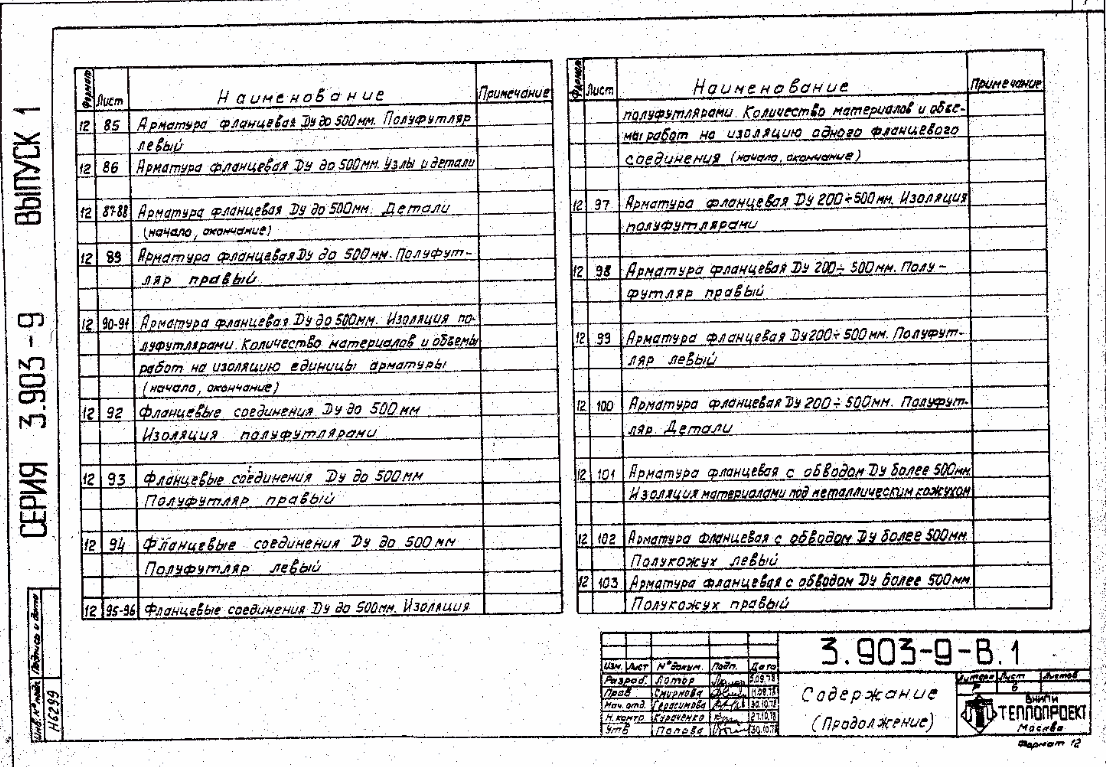 СЕРИЯ 3.903-9 ВЫПУСК 1
Формат Лист Наименование Примечание
12 85 Арматура фланцевая Dу до 500мм. Полуфутляр
левый
12 86 Арматура фланцевая Dу до 500мм. Узлы и детали
12 87-88 Арматура фланцевая Dу до 500мм. Детали
(начало, окончание)
12 89 Арматура фланцевая Dу до 500мм. Полуфут-
ляр правый
12 90-91 Арматура фланцевая Dу до 500мм. Изоляция по-
луфутлярами. Количество материалов и объемы
работ на изоляцию единицы арматуры
(начало, окончание)
12 92 Фланцевые соединения Dу до 500мм
Изоляция полуфутлярами
12 93 Фланцевые соединения Dу до 500мм
Полуфутляр правый
12 94 Фланцевые соединения Dу до 500мм
Полуфутляр левый
12 95-96 Фланцевые соединения Dу до 500мм. Изоляция
Формат Лист Наименование Примечание
полуфутлярами. Количество материалов и объе-
мы работ на изоляцию одного фланцевого
соединения (начало, окончание)
12 97 Арматура фланцевая Dу 200÷500мм. Изоляция
полуфутлярами
12 98 Арматура фланцевая Dу 200÷500мм. Полу-
футляр правый
12 99 Арматура фланцевая Dу 200÷500мм. Полуфут-
ляр левый
12 100 Арматура фланцевая Dу 200÷500мм. Полуфут-
ляр. Детали
12 101 Арматура фланцевая с обводом Dу более 500мм.
Изоляция материалами под металлическим кожухом
12 102 Арматура фланцевая с обводом Dу более 500мм.
Полукожух левый
12 103 Арматура фланцевая с обводом Dу более 500мм.
Полукожух правый
Инв. № подл. Подпись и дата
Н6299
3.903-9-В.1
Изм. Лист № докум. Подп. Дата
Разраб. Лотор
Пров Смирнова
Нач. отд. Герасимова 30.10.78
Н. контр. 27.10.78
Утв Попова 30.10.78
Содержание
(Продолжение)
Литера Лист Листов
Р 6
ВНИПИ
ТЕПЛОПРОЕКТ
Москва
Формат 12